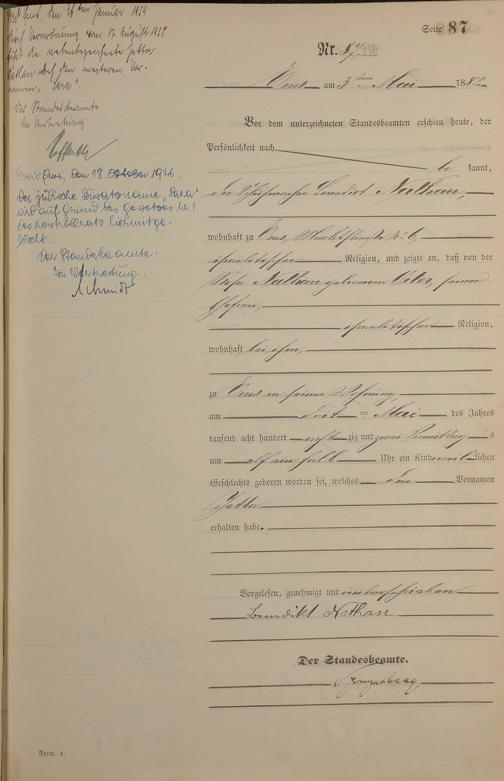 Bad Ems, den 26ten Januar 1939
Durch Verordnung vom 17 August 1938
führt die nebenbezeichnete Jetta
Nathan noch den weiteren Vor-
namen „Sara“.
Der Standesbeamte
In Vertretung:
Bad Ems, den 18. Oktober 1946.
Der jüdische Zusatzname „Sara“
wird auf Grund des Gesetzes Nr 1
des Kontrollrats hiermit ge-
löscht.
Der Standesbeamte:
In Vertretung:
Schmidt
Seite 87
Nr. 87
Ems am 3ten Mai 188
Vor dem unterzeichneten Standesbeamten erschien heute, der
Persönlichkeit nach
be kannt,
der Benedikt Nathan,
wohnhaft zu Ems,
israelitischer Religion, und zeigte an, daß von der
Rosa Nathan geborenen seiner
Ehefrau,
israelitischer Religion,
wohnhaft bei ihm,
zu Ems in seiner Wohnung,
am ten Mai des Jahres
tausend acht hundert acht zig und zwei Vormittags
um elf ein halb Uhr ein Kind weiblichen
Geschlechts geboren worden sei, welches den Vornamen
Jetta
erhalten habe.
Vorgelesen, genehmigt und unterschrieben
Benedikt Nathan
Der Standesbeamte.
Form. A.